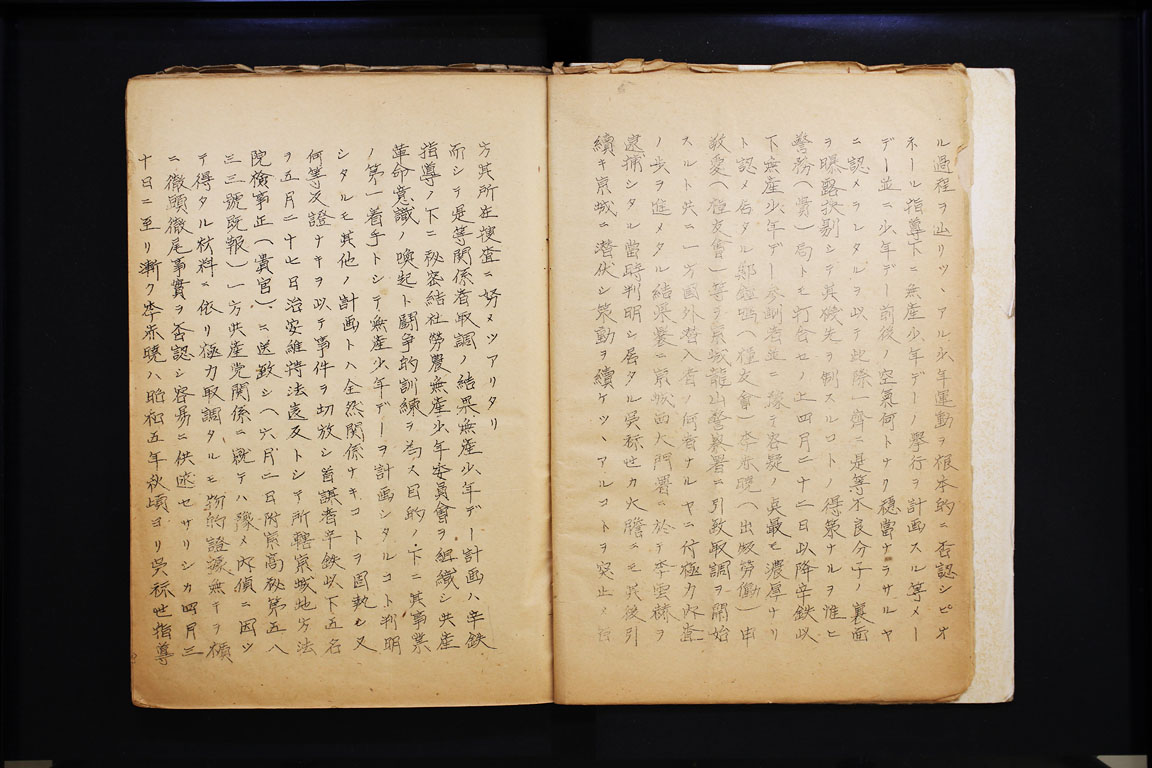 ル過程ヲ辿リツヽアル少年運動ヲ根本的ニ否認シピオ
ネール指導下ニ無産少年デー擧行ヲ計画スル等メー
デー並ニ少年デー前後ノ空氣何トナク穏當ナラサルヤ
ニ認メラレタルヲ以テ此際一齊ニ是等不良分子ノ裏面
ヲ曝露抉剔シテ其機先ヲ制スルコトノ得策ナルヲ惟ヒ
警務(貴)局トモ打合セノ上四月二十二日以降辛鉄以
下無産少年デー参訓者並ニ豫テ容疑ノ眞最モ濃厚ナリ
ト認メ居タル鄭鎧(槿友會)李赤曉(出版労働)申
敬愛(槿友會)等ヲ京城龍山警察署ニ引致取調ヲ開始
スルト共ニ一方國外潜入者ノ何者ナルヤニ付極力内査
ノ歩ヲ進メタル結果曩ニ京城西大門署ニ於テ李雲赫ヲ
逮捕シタル當時判明シ居タル呉祢世カ大膽ニモ其後引
續キ京城ニ潜伏シ策動ヲ續ケツヽアルコトヲ突止メ
方其所在捜査ニ努メツアリタリ
而シテ是等関係者取調ノ結果無産少年デー計画ハ辛鉄
指導ノ下ニ秘密結社勞農無産少年委員會ヲ組織シ共産
革命意識ノ喚起ト闘争的訓練ヲ為ス目的ノ下ニ其事業
ノ第一着手トシテ無産少年デーヲ計画シタルコト判明
シタルモ其他ノ計画トハ全然関係ナキコトヲ固執シ又
何等反證ナキヲ以テ事件ヲ切放シ首謀者辛鉄以下五名
ヲ五月二十七日治安維持法違反トシテ所轄京城地方法
院檢事正(貴官)ニ送致シ(六月二日附京高秘第五八
三三號既報)一方共産党関係ニ就テハ豫メ内偵ニ因ツ
テ得タル材料ニ依リ極力取調タルモ物的證據無キヲ傾
ニ徹頭徹尾事實ヲ否認シ容易ニ供述セサリシカ四月三
十日ニ至リ漸ク李赤曉ハ昭和五年秋頃ヨリ呉祢世指導